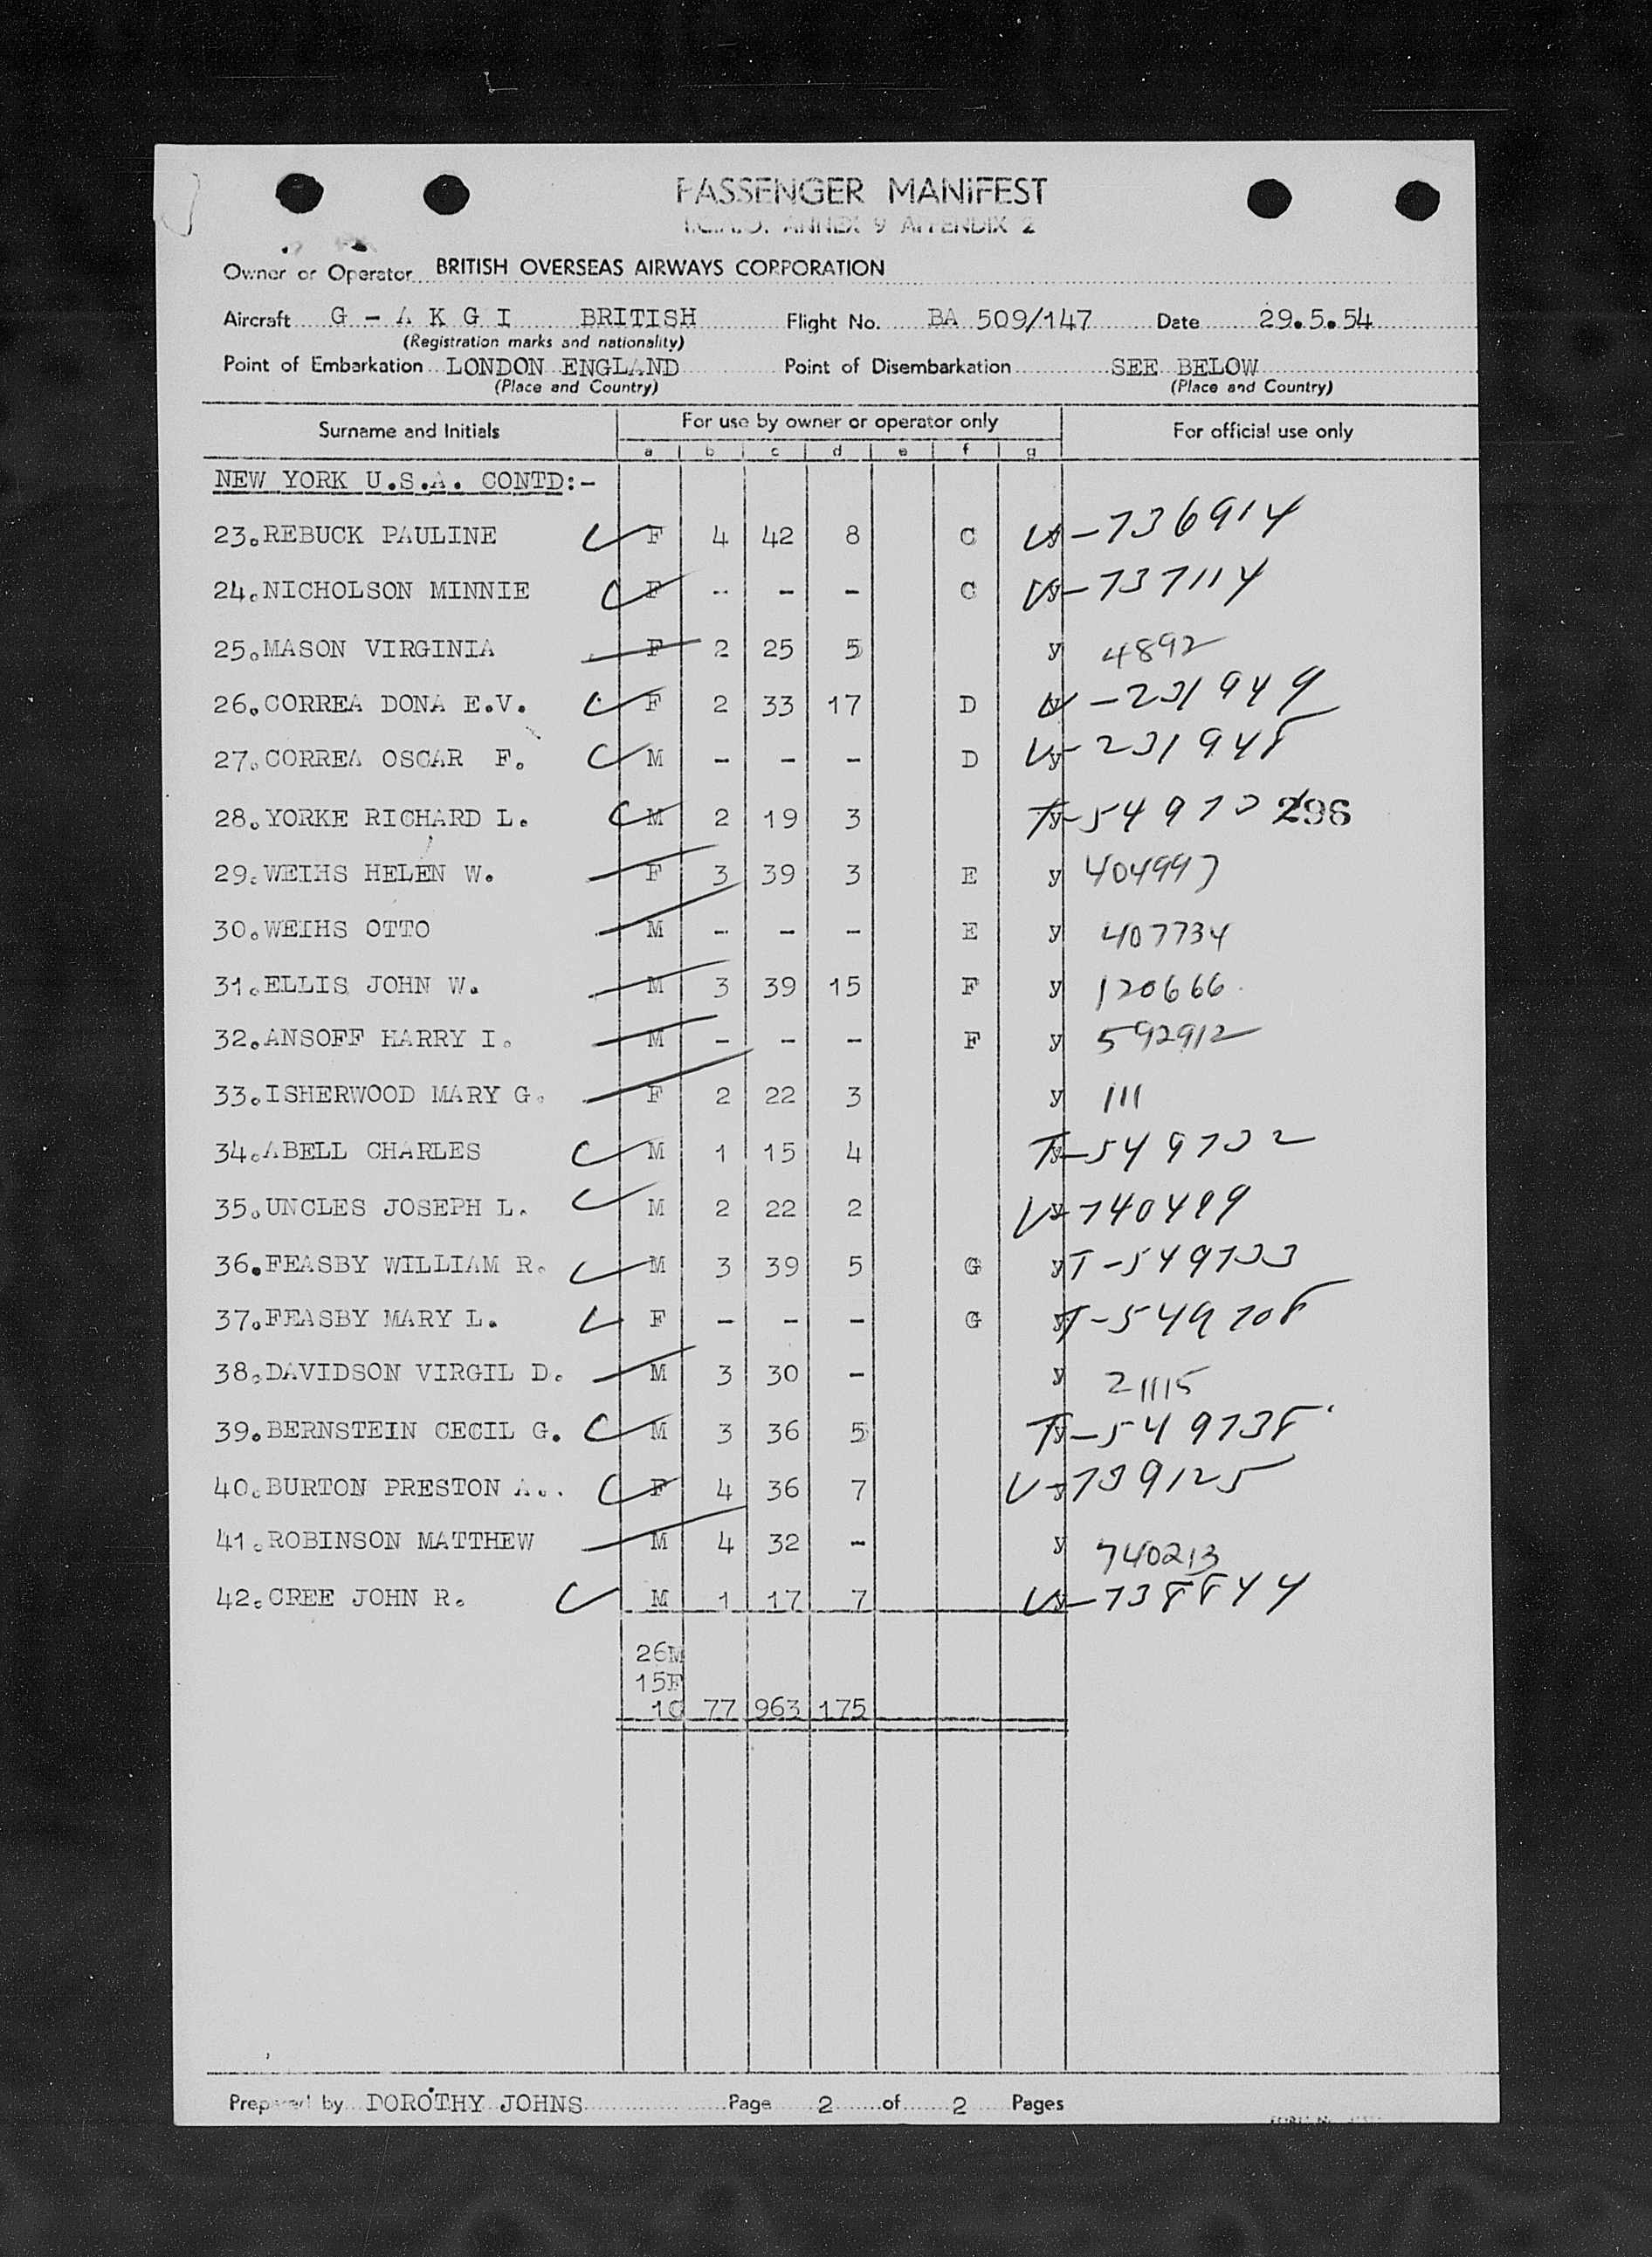 PASSENGER MANIFEST
I.C.A.O. ANNEX 9 APPENDIX 2
Owner or Operator BRITISH OVERSEAS AIRWAYS CORPORATION
Aircraft G - A K G I BRITISH Flight No. BA 509/147 Date 29.5.54
(Registration marks and nationality)
Point of Embarkation LONDON ENGLAND Point of Disembarkation SEE BELOW
(Place and Country) (Place and Country)
Surname and Initials For use by owner or operator only For official use only
a b c d e f g
NEW YORK U.S.A. CONTD:-
23. REBUCK PAULINE F 4 42 8 C y V-736914
24. NICHOLSON MINNIE F - - - C y V-737114
25. MASON VIRGINIA F 2 25 5 y 4892
26. CORREA DONA E.V. F 2 33 17 D y V-231949
27. CORREA OSCAR F. M - - - D y V-231948
28. YORKE RICHARD L. M 2 19 3 y T-549730 296
29. WEIHS HELEN W. F 3 39 3 E y 404997
30. WEIHS OTTO M - - - E y 407734
31. ELLIS JOHN W. M 3 39 15 F y 120666
32. ANSOFF HARRY I. M - - - F y 592912
33. ISHERWOOD MARY G. F 2 22 3 y 111
34. ABELL CHARLES M 1 15 4 y T-549732
35. UNCLES JOSEPH L. M 2 22 2 y V-740499
36. FEASBY WILLIAM R. M 3 39 5 G y T-549733
37. FEASBY MARY L. F - - - G y T-549708
38. DAVIDSON VIRGIL D. M 3 30 - y 21115
39. BERNSTEIN CECIL G. M 3 36 5 y T-549738
40. BURTON PRESTON A.. F 4 36 7 y V-739125
41. ROBINSON MATTHEW M 4 32 - y 740213
42. CREE JOHN R. M 1 17 7 y V-738844
26M
15F
1C 77 963 175
Prepared by DOROTHY JOHNS Page 2 of 2 Pages